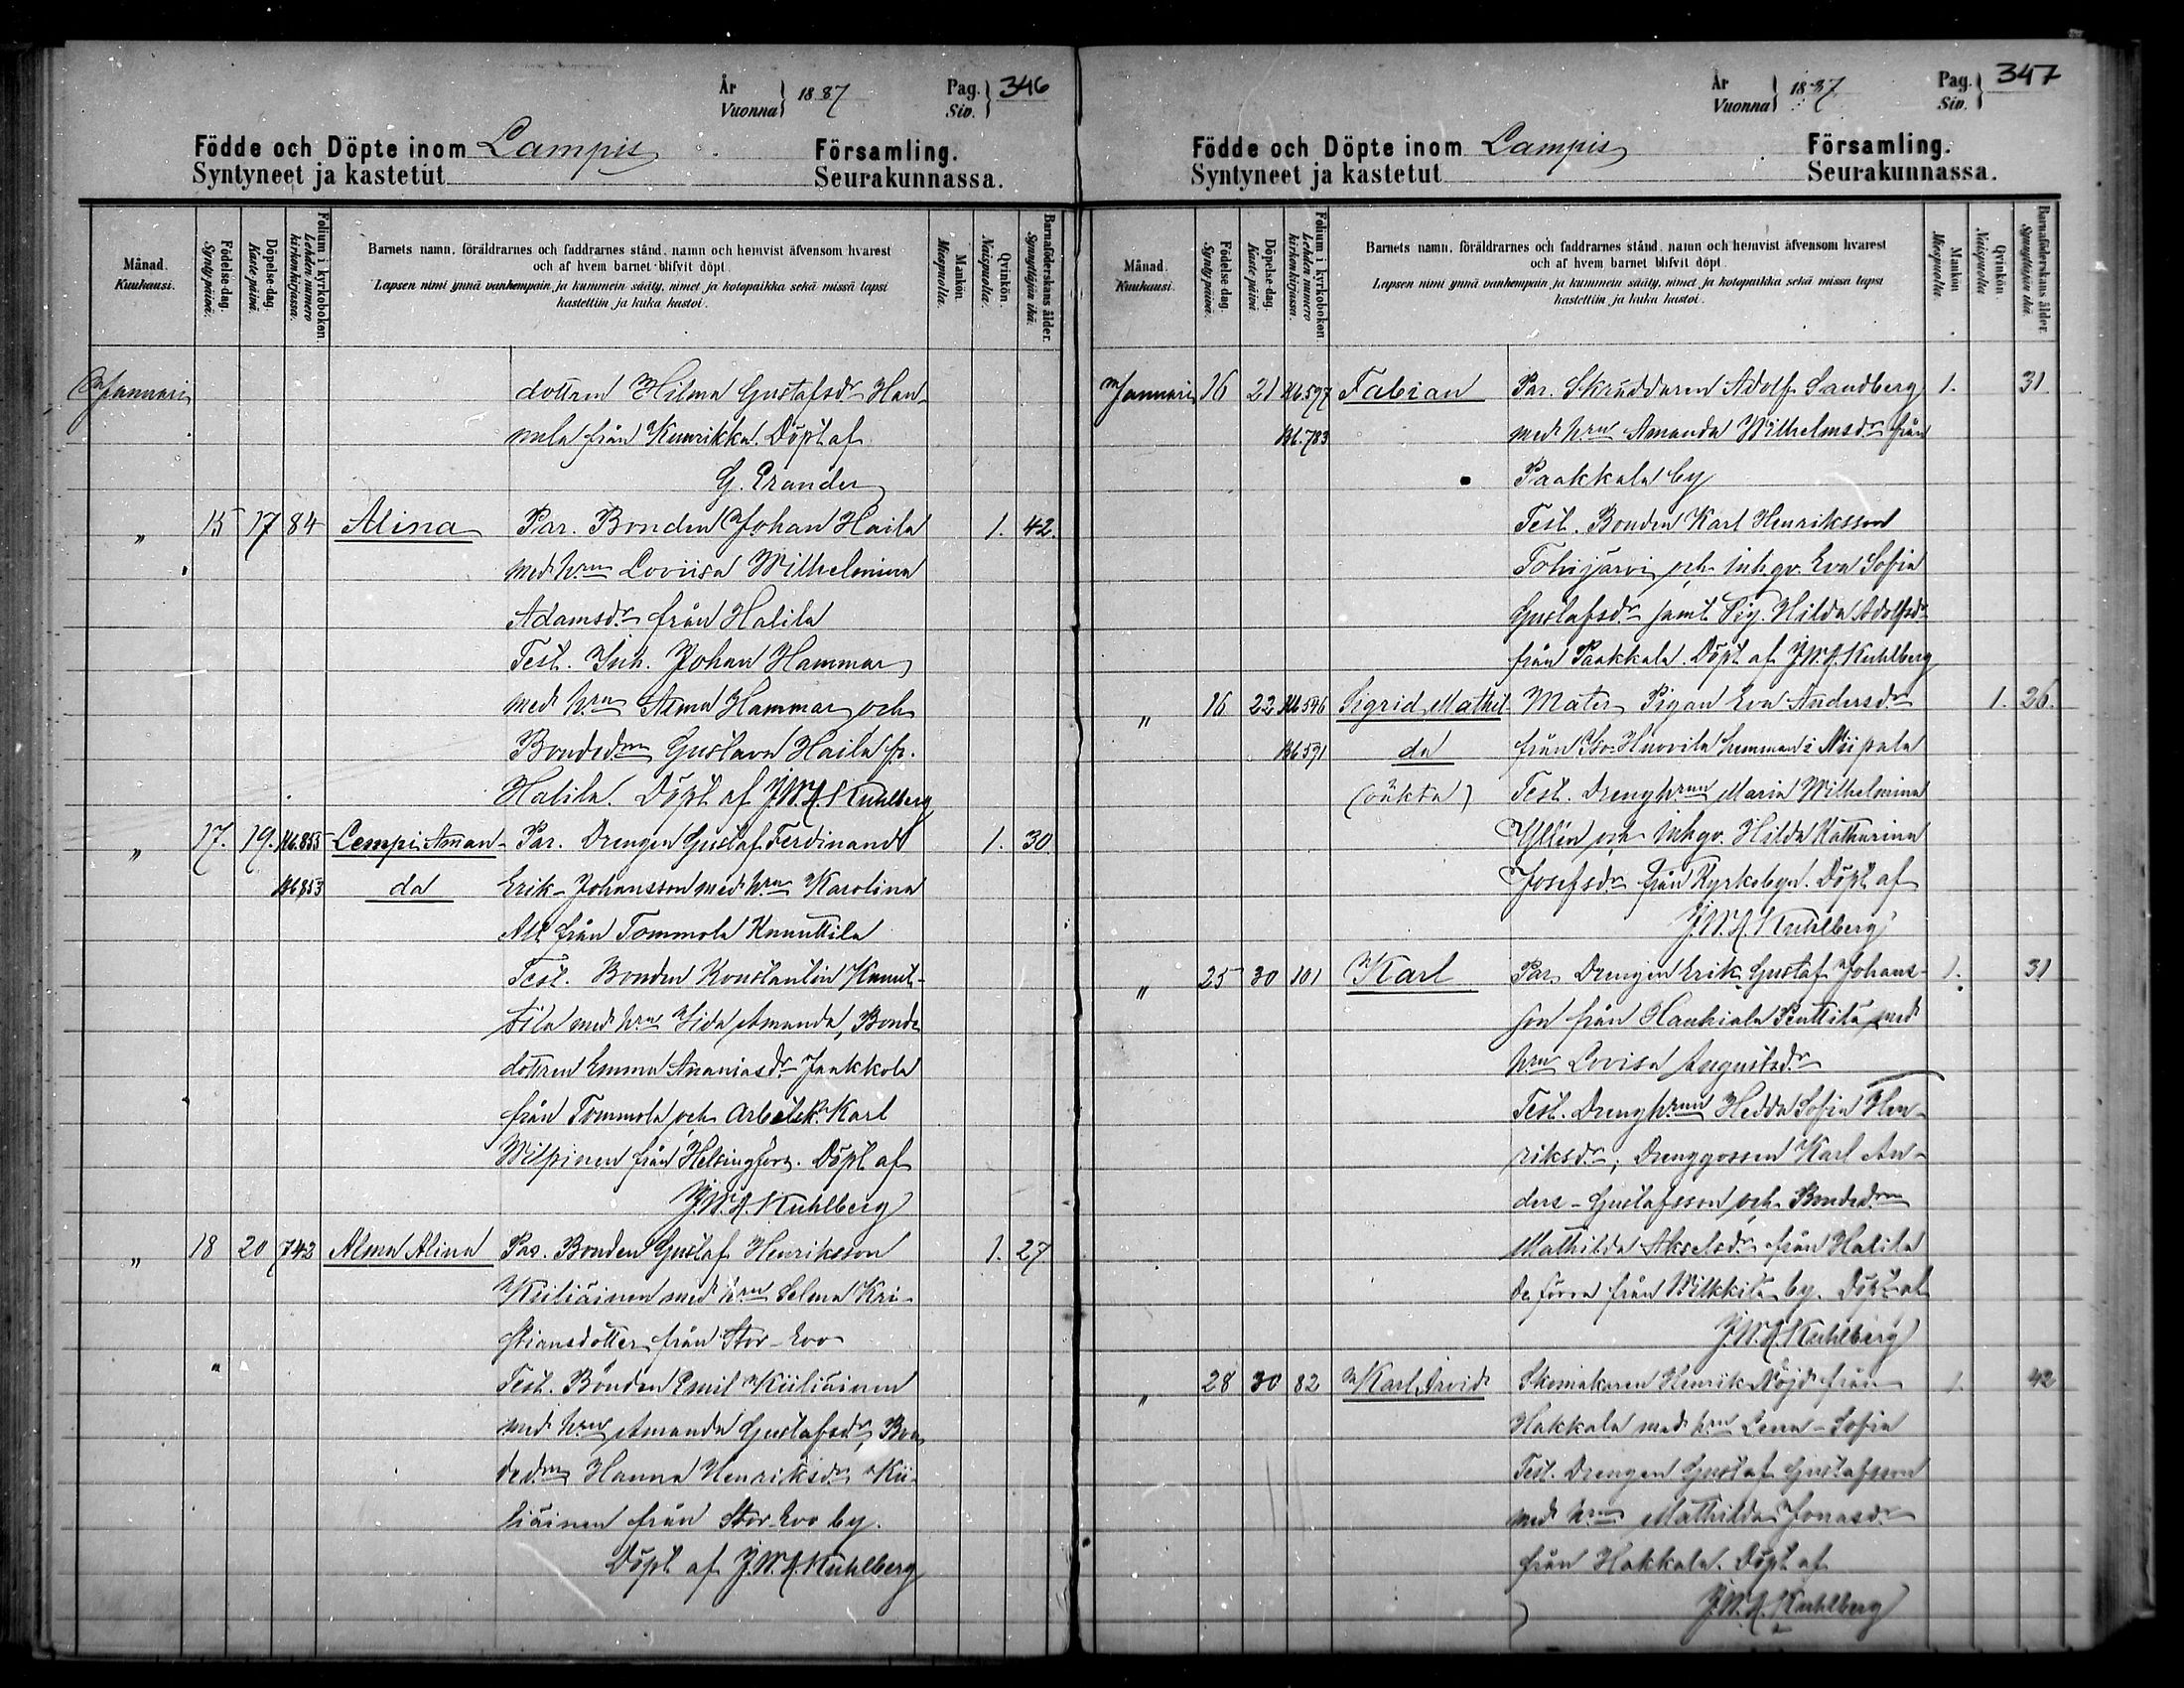 År
Vuonna } 1887 Pag.
Siv. } 346
Födde och Döpte inom Lampis Församling.
Syntyneet ja kastetut Seurakunnassa.
Månad.
Kuukausi.
Födelse-dag.
Syntypäivä.
Döpelse-dag
Kastepäivä.
Folium i kyrkoboken.
Lehden numero
kirkonkirjassa.
Barnets namn, föräldrarnes och faddrarnes stånd, namn och hemvist äfvensom hvarest
och af hvem barnet blifvit döpt.
Lapsen nimi ynnä vanhempain ja kummein sääty, nimet ja kotopaikka sekä missä lapsi
kastettiin ja kuka kastoi.
Mankön.
Miespuolia.
Qvinkön
Naispuolia.
Barnaföderskans ålder.
Synnyttäjän ikä.
Januari dottren Hilma Gustafsdr Han-
nula från Kuurikka. Döpt af
G. Erander
" 15 17 84 Alina Par. Bonden Johan Haila 1. 42.
med hru Loviisa Wilhelmina
Adamsdr från Halila
Test. Inh. Johan Hammar
med hru Alma Hammar och
Bondedn Gustava Haila fr.
Halila. Döpt af J.W.A. Kuhlberg
" 17. 19. 855 Lempi Aman- Par. Drengen Gustaf Ferdinand 1. 30
853 da Erik-Johansson med hru Karolina
från Tommola Knuuttila
Test. Bonden Konstantin Knuut-
tila med hru Iida Amanda, Bonde
dottren Emma Ananiasdr Jaakkola
från Tommola och Arbetsk. Karl
Wilpinen från Helsingfors. Döpt af
J.W.A. Kuhlberg
" 18 20 742 Alma Alina Par. Bonden Gustaf Henriksson 1. 27
Kiiliäinen med hru Selma Kri-
stiansdotter från Stor-Evo
Test. Bonden Emil Kiiliäinen
med hru Amanda Gustafsdr, Bon
dedn Hanna Henriksdr Kii-
liäinen från Stor-Evo by.
Döpt af J.W.A. Kuhlberg
År
Vuonna } 1887 Pag.
Siv. } 347
Födde och Döpte inom Lampis Församling.
Syntyneet ja kastetut Seurakunnassa.
Månad
Kuukausi.
Födelse dag.
Syntypäivä.
Döpelse-dag
Kastepäivä.
Folium i kyrkoboken
Lehden numero
kirkonkirjassa.
Barnets namn, föräldrarnes och faddrarnes stånd, namn och hemvist äfvensom hvarest
och af hvem barnet blifvit döpt.
Lapsen nimi ynnä vanhempain ja kummein sääty, nimet ja kotopaikka sekä missä lapsi
kastettiin ja kuka kastoi.
Mankön
Miespuolia.
Qvinkön.
Naispuolia
Barnaföderskans ålder.
Synnyttäjän ikä.
Januari 16 21 597 Fabian Par. Skräddaren Adolf Sandberg 1. 31
783 med hru Amanda Wilhelmsdr från
Paakkala by
Test. Bonden Karl Henriksson
Tohijärvi och Inhqv. Eva Sofia
Gustafsdr samt Pig. Hilda Adolfsdr
från Paakkala. Döpt af J.W.A. Kuhlberg
" 16 22 546 Sigrid Mathil- Mater Pigan Eva Andersdr 1. 26.
591 da från Huovila
(oäkta) Test. Drenghrun Maria Wilhelmina
Yllén och Inhqv. Hilda Katharina
Josefsdr från Kyrkobyn. Döpt af
J.W.A. Kuhlberg
" 25 30 101 Karl Par. Drengen Erik Gustaf Johans- 1. 31
son från Hauhiala Penttilä med
hru Lovisa Augustsdr
Test. Drenghrun Hedda Sofia Hen-
riksdr, Drenggossen Karl An-
ders-Gustafsson och Bondedn
Mathilda Akselsdr från Halila
de förra från Wilkkilä by. Döpt af
J.W.A. Kuhlberg
" 28 30 82 Karl Arvid Skomakaren Henrik Nöjd från 1. 42
Hakkala med hru Lena-Sofia
Test. Drengen Gustaf Gustafsson
med hru Mathilda Jonasdr
från Hakkala. Döpt af
J.W.A. Kuhlberg